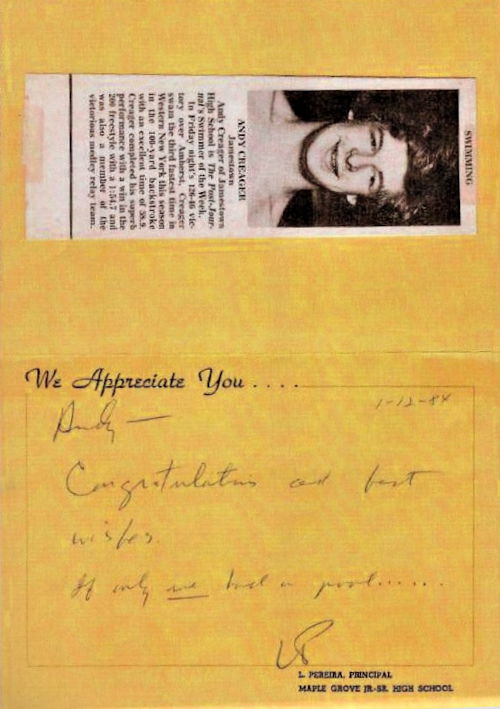 SWIMMING
ANDY CREAGER
Jamestown
Andy Creager of Jamestown
High School is The Post-Jour-
nal's Swimmer of the Week.
In Friday night's 126-46 vic-
tory over Amherst, Creager
swam the third fastest time in
Western New York this season
in the 100-yard backstroke
with an excellent time of 58.9.
Creager completed his superb
performance with a win in the
200 freestyle with a 1:54.7 and
was also a member of the
victorious medley relay team.
We Appreciate You ....
1-12-84
Andy —
Congratulations and best
wishes.
If only we had a pool......
LP
L. PEREIRA, PRINCIPAL
MAPLE GROVE JR-SR. HIGH SCHOOL